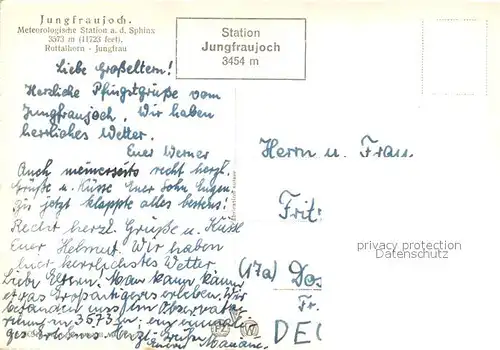 Jungfraujoch.
Meteorologische Station a. d. Sphinx
3573 m (11723 feet).
Rottalhorn - Jungfrau
Station
Jungfraujoch
3454 m
Liebe Großeltern!
Herzliche Pfingstgrüße vom
Jungfraujoch. Wir haben
herrliches Wetter.
Euer Werner
Auch meinerseits recht herzl.
Grüße u. Küsse Euer Sohn Eugen
Bis jetzt klappte alles bestens!
Recht herzl. Grüße u. Kußl
Euer Helmut. Wir haben
hier herrlichstes Wetter
Liebe Eltern. Man kann kaum
etwas Großartigeres erleben. Wir
befanden uns im
in 3573 m; ein
Erlebnis. Herzl. Grüße
Mariane.
Herrn u. Frau
Frit
(17a) Dos
Fr.
DEU
privacy protection
Datenschutz